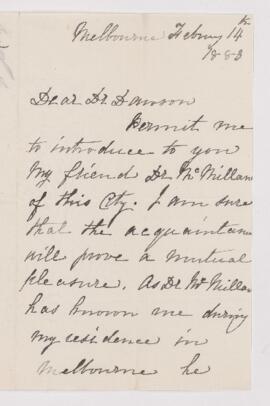 Melbourne Febuny 14th
1883
Dear Dr Dawson
Permit me
to introduce to you
my friend Dr McMillan
of this City. I am sure
that the acquaintance
will prove a mutual
pleasure. As Dr McMillan
has known me during
my residence in
Melbourne he